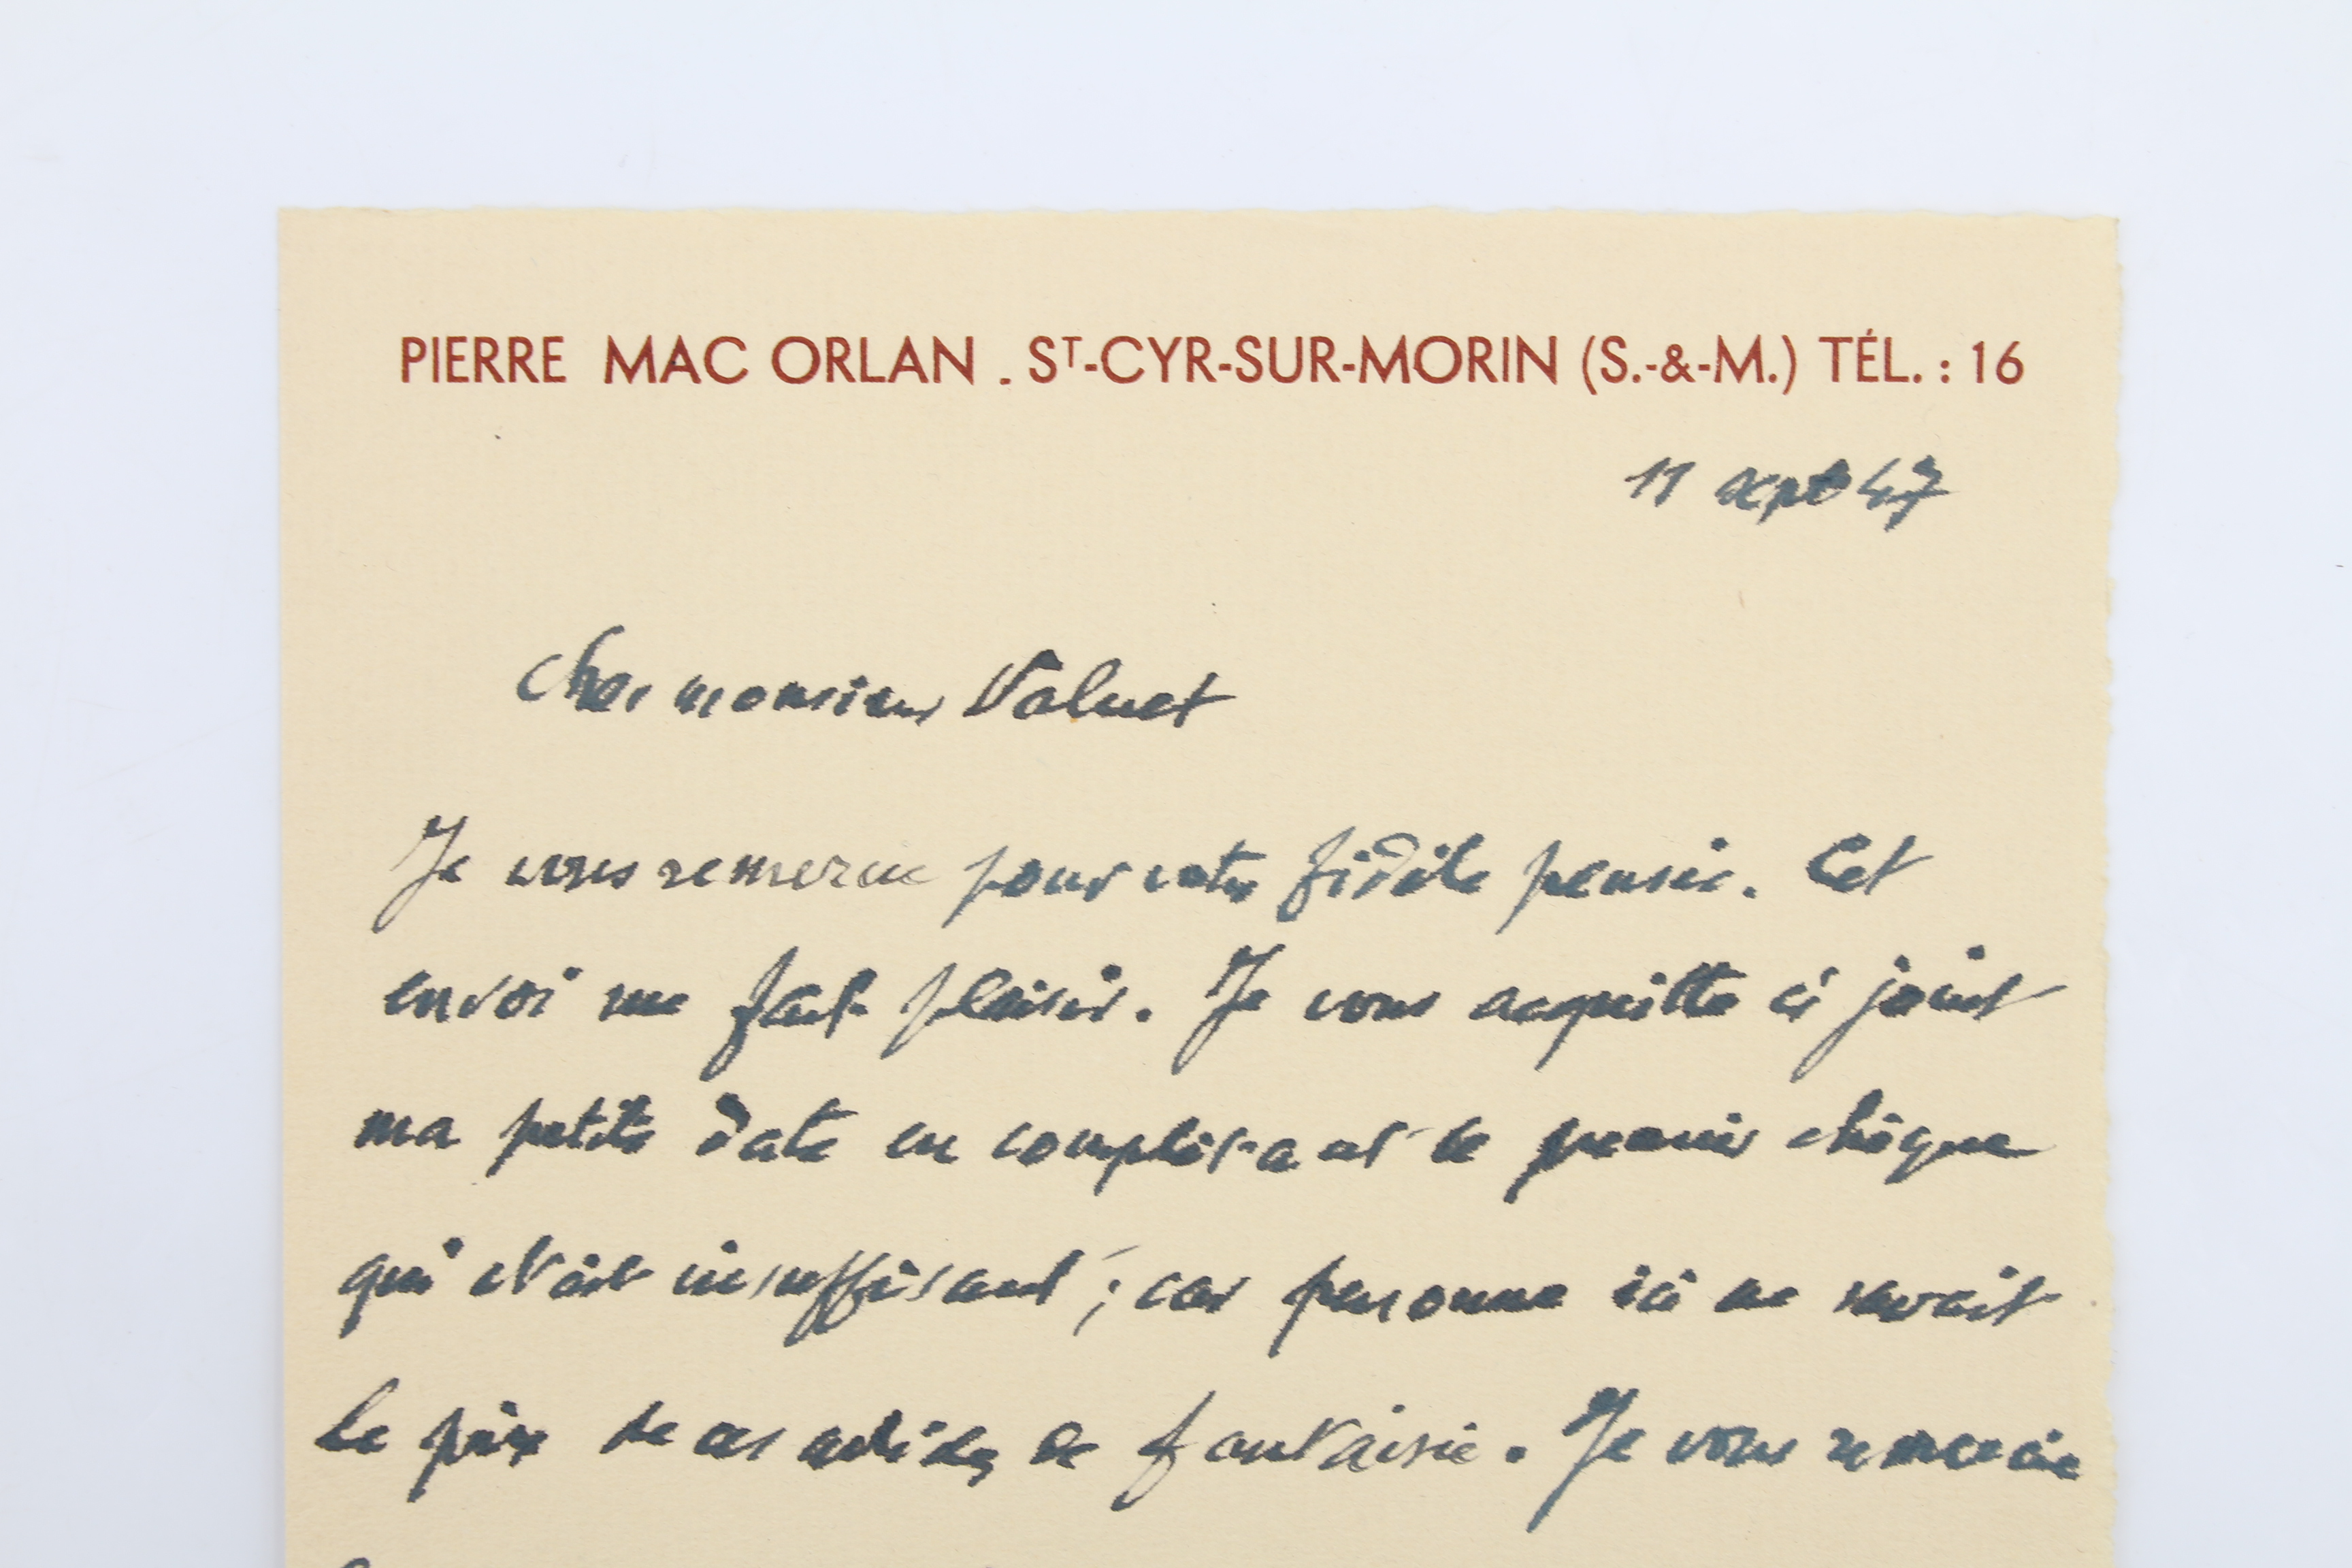 PIERRE MAC ORLAN . ST-CYR-SUR-MORIN (S.-&-M.) TÉL. : 16
11 sept 47
Cher monsieur Valuet
Je vous remercie pour votre fidèle pensée. Cet
envoi me fait plaisir. Je vous acquitte ci joint
ma petite dette en complétant le premier chèque
qui était insuffisant ; car personne ici ne savait
le prix de ces articles de fantaisie. Je vous remercie